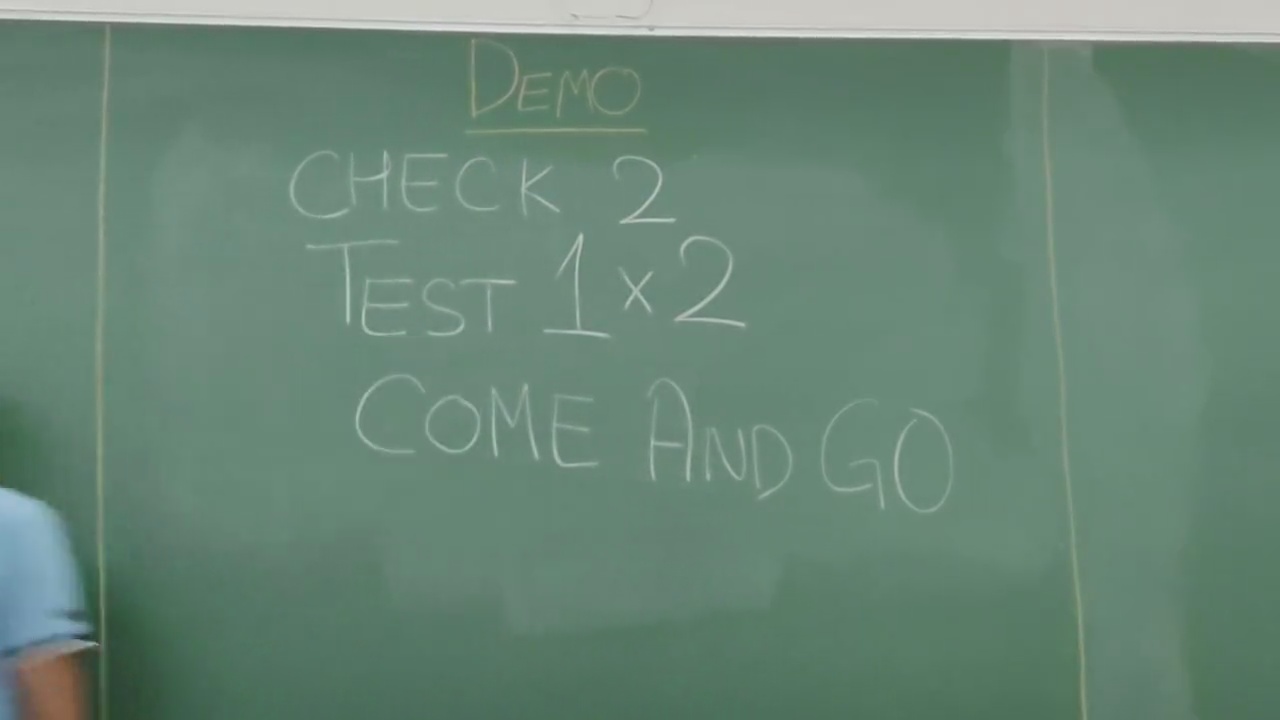 DEMO
CHECK 2
TEST 1 × 2
COME AND GO